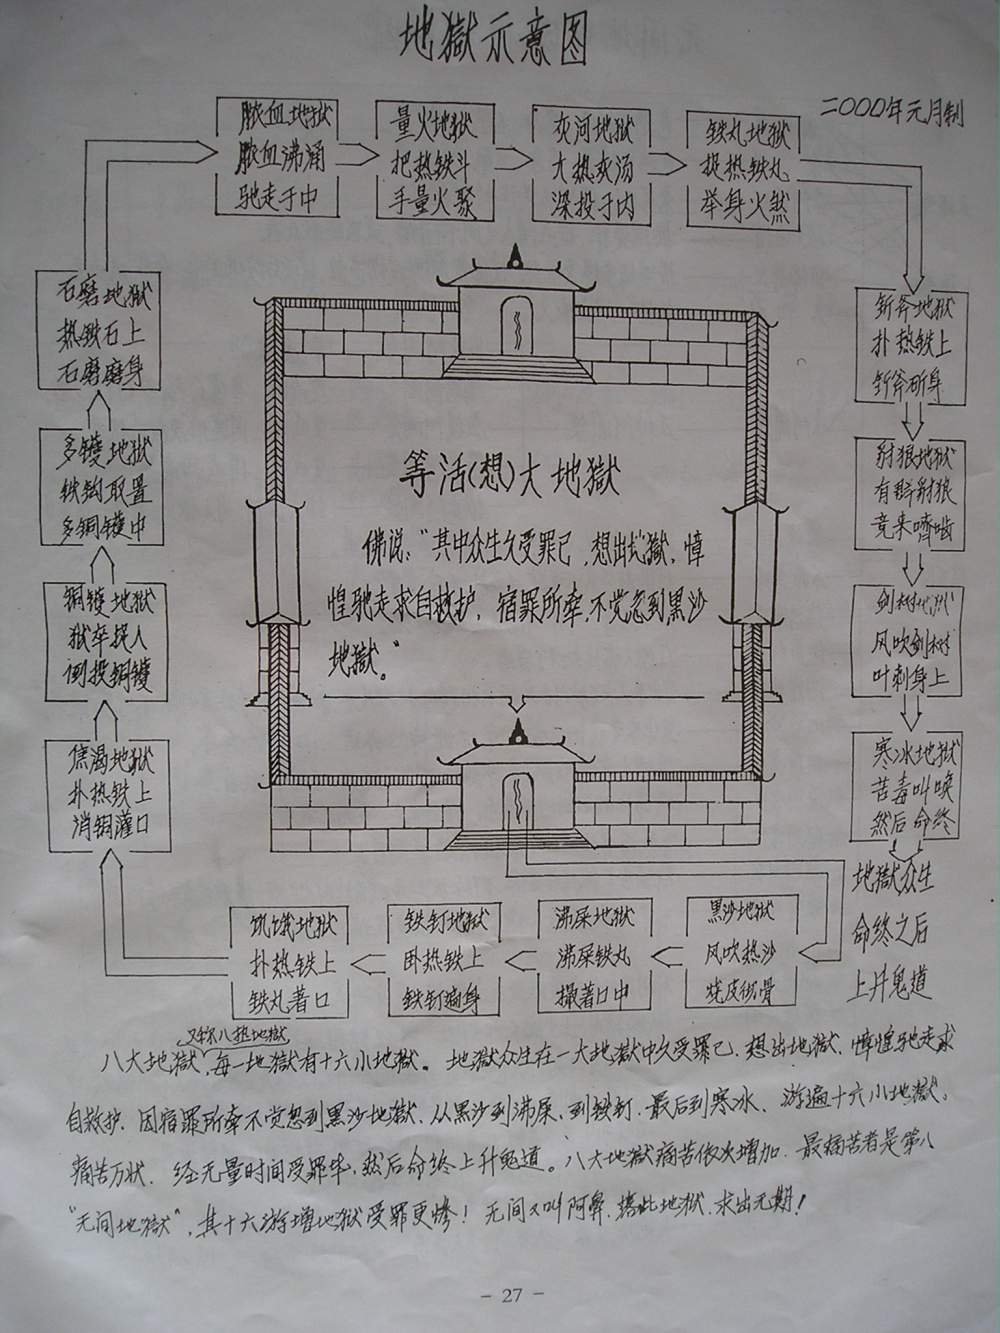 地獄示意图
二000年元月制
脓血地獄
脓血沸涌
驰走于中
量火地獄
把热铁斗
手量火聚
灰河地獄
大热灰汤
深投于内
铁丸地獄
捉热铁丸
举身火燃
釿斧地獄
扑热铁上
釿斧斫身
豺狼地獄
有豺狼
竞来嚌啮
剑树地獄
风吹剑树
叶刺身上
寒冰地獄
苦毒叫唤
然后命终
地獄众生
命终之后
上升鬼道
石磨地獄
热铁石上
石磨磨身
多镬地獄
铁钩取置
多铜镬中
铜镬地獄
獄卒捉人
倒投铜镬
焦渴地獄
扑热铁上
消铜灌口
等活(想)大地獄
佛说："其中众生久受罪已，想出地獄，慞
惶驰走求自救护，宿罪所牵，不觉忽到黑沙
地獄。"
饥饿地獄
扑热铁上
铁丸著口
铁钉地獄
卧热铁上
铁钉遍身
沸屎地獄
沸屎铁丸
撮著口中
黑沙地獄
风吹热沙
烧皮彻骨
又称八热地獄
八大地獄，每一地獄有十六小地獄。地獄众生在一大地獄中久受罪已，想出地獄，慞惶驰走求
自救护，因宿罪所牵不觉忽到黑沙地獄，从黑沙到沸屎，到铁钉，最后到寒冰，游遍十六小地獄，
痛苦万状，经无量时间受罪毕，然后命终上升鬼道。八大地獄痛苦依次增加，最痛苦者是第八
"无间地獄"，其十六游增地獄受罪更惨！无间又叫阿鼻，堕此地獄，求出无期！
- 27 -